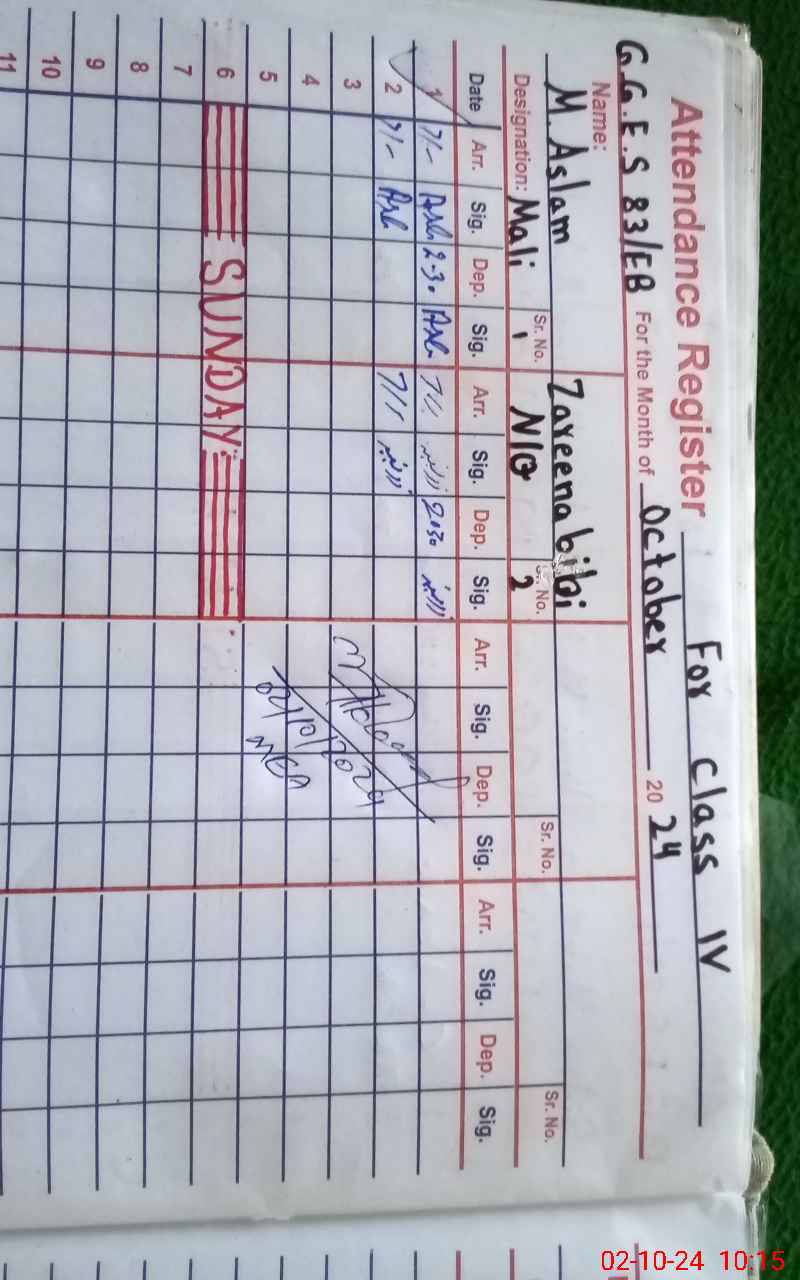 Attendance Register For Class IV
G.G.E.S 83/EB For the Month of October 20 24
Name: M. Aslam Zareena bibi
Designation: Mali Sr. No. 1 N/Q Sr. No. 2 Sr. No. Sr. No.
Date Arr. Sig. Dep. Sig. Arr. Sig. Dep. Sig. Arr. Sig. Dep. Sig. Arr. Sig. Dep. Sig.
1 7/- 2-30 2-30
2 7/-
3
4
5
6 SUNDAY
7
8
9
10
11
MEA
02-10-24 10:15